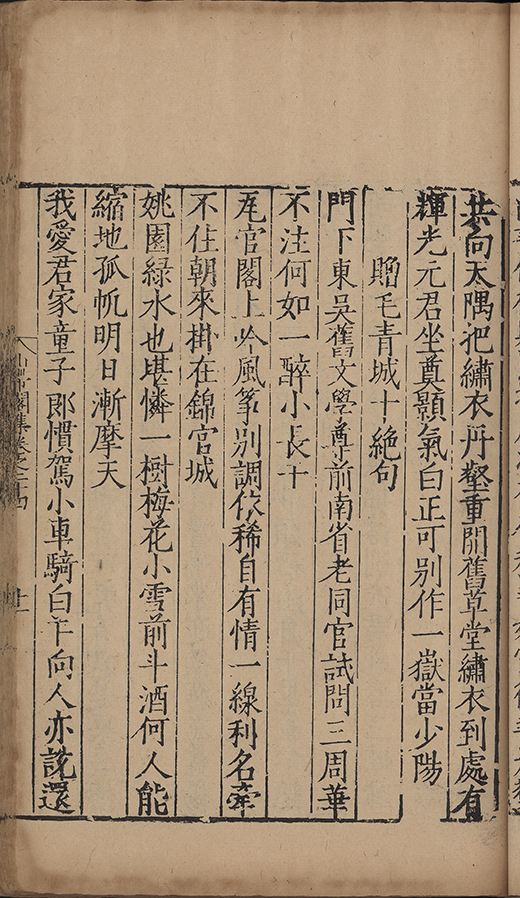 共向天隅浥繡衣丹壑重開舊草堂繡衣到處有
輝光元君坐奠顥氣白正可别作一嶽當少陽
贈毛青城十絶句
門下東吳舊文學尊前南省老同官試問三周華
不注何如一醉小長干
瓦官閣上吟風筝别調依稀自有情一線利名牽
不住朝來掛在錦宮城
姚園緑水也堪憐一樹梅花小雪前斗酒何人能
縮地孤帆明日漸摩天
我愛君家童子郎慣駕小車騎白羊向人亦説還
集卷之十四
十一